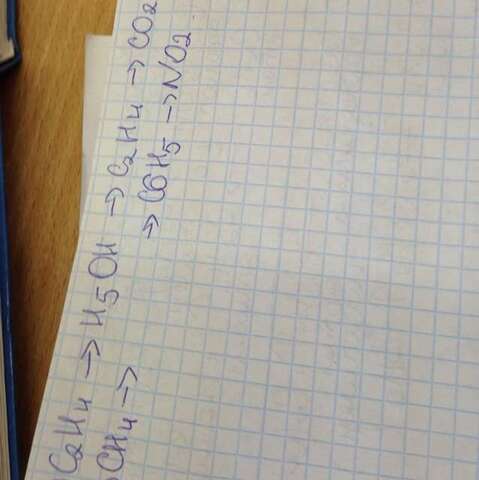 C₂H₄ → H₅OH → C₂H₄ → CO₂
CH₄ → → C6H₅ → NO₂